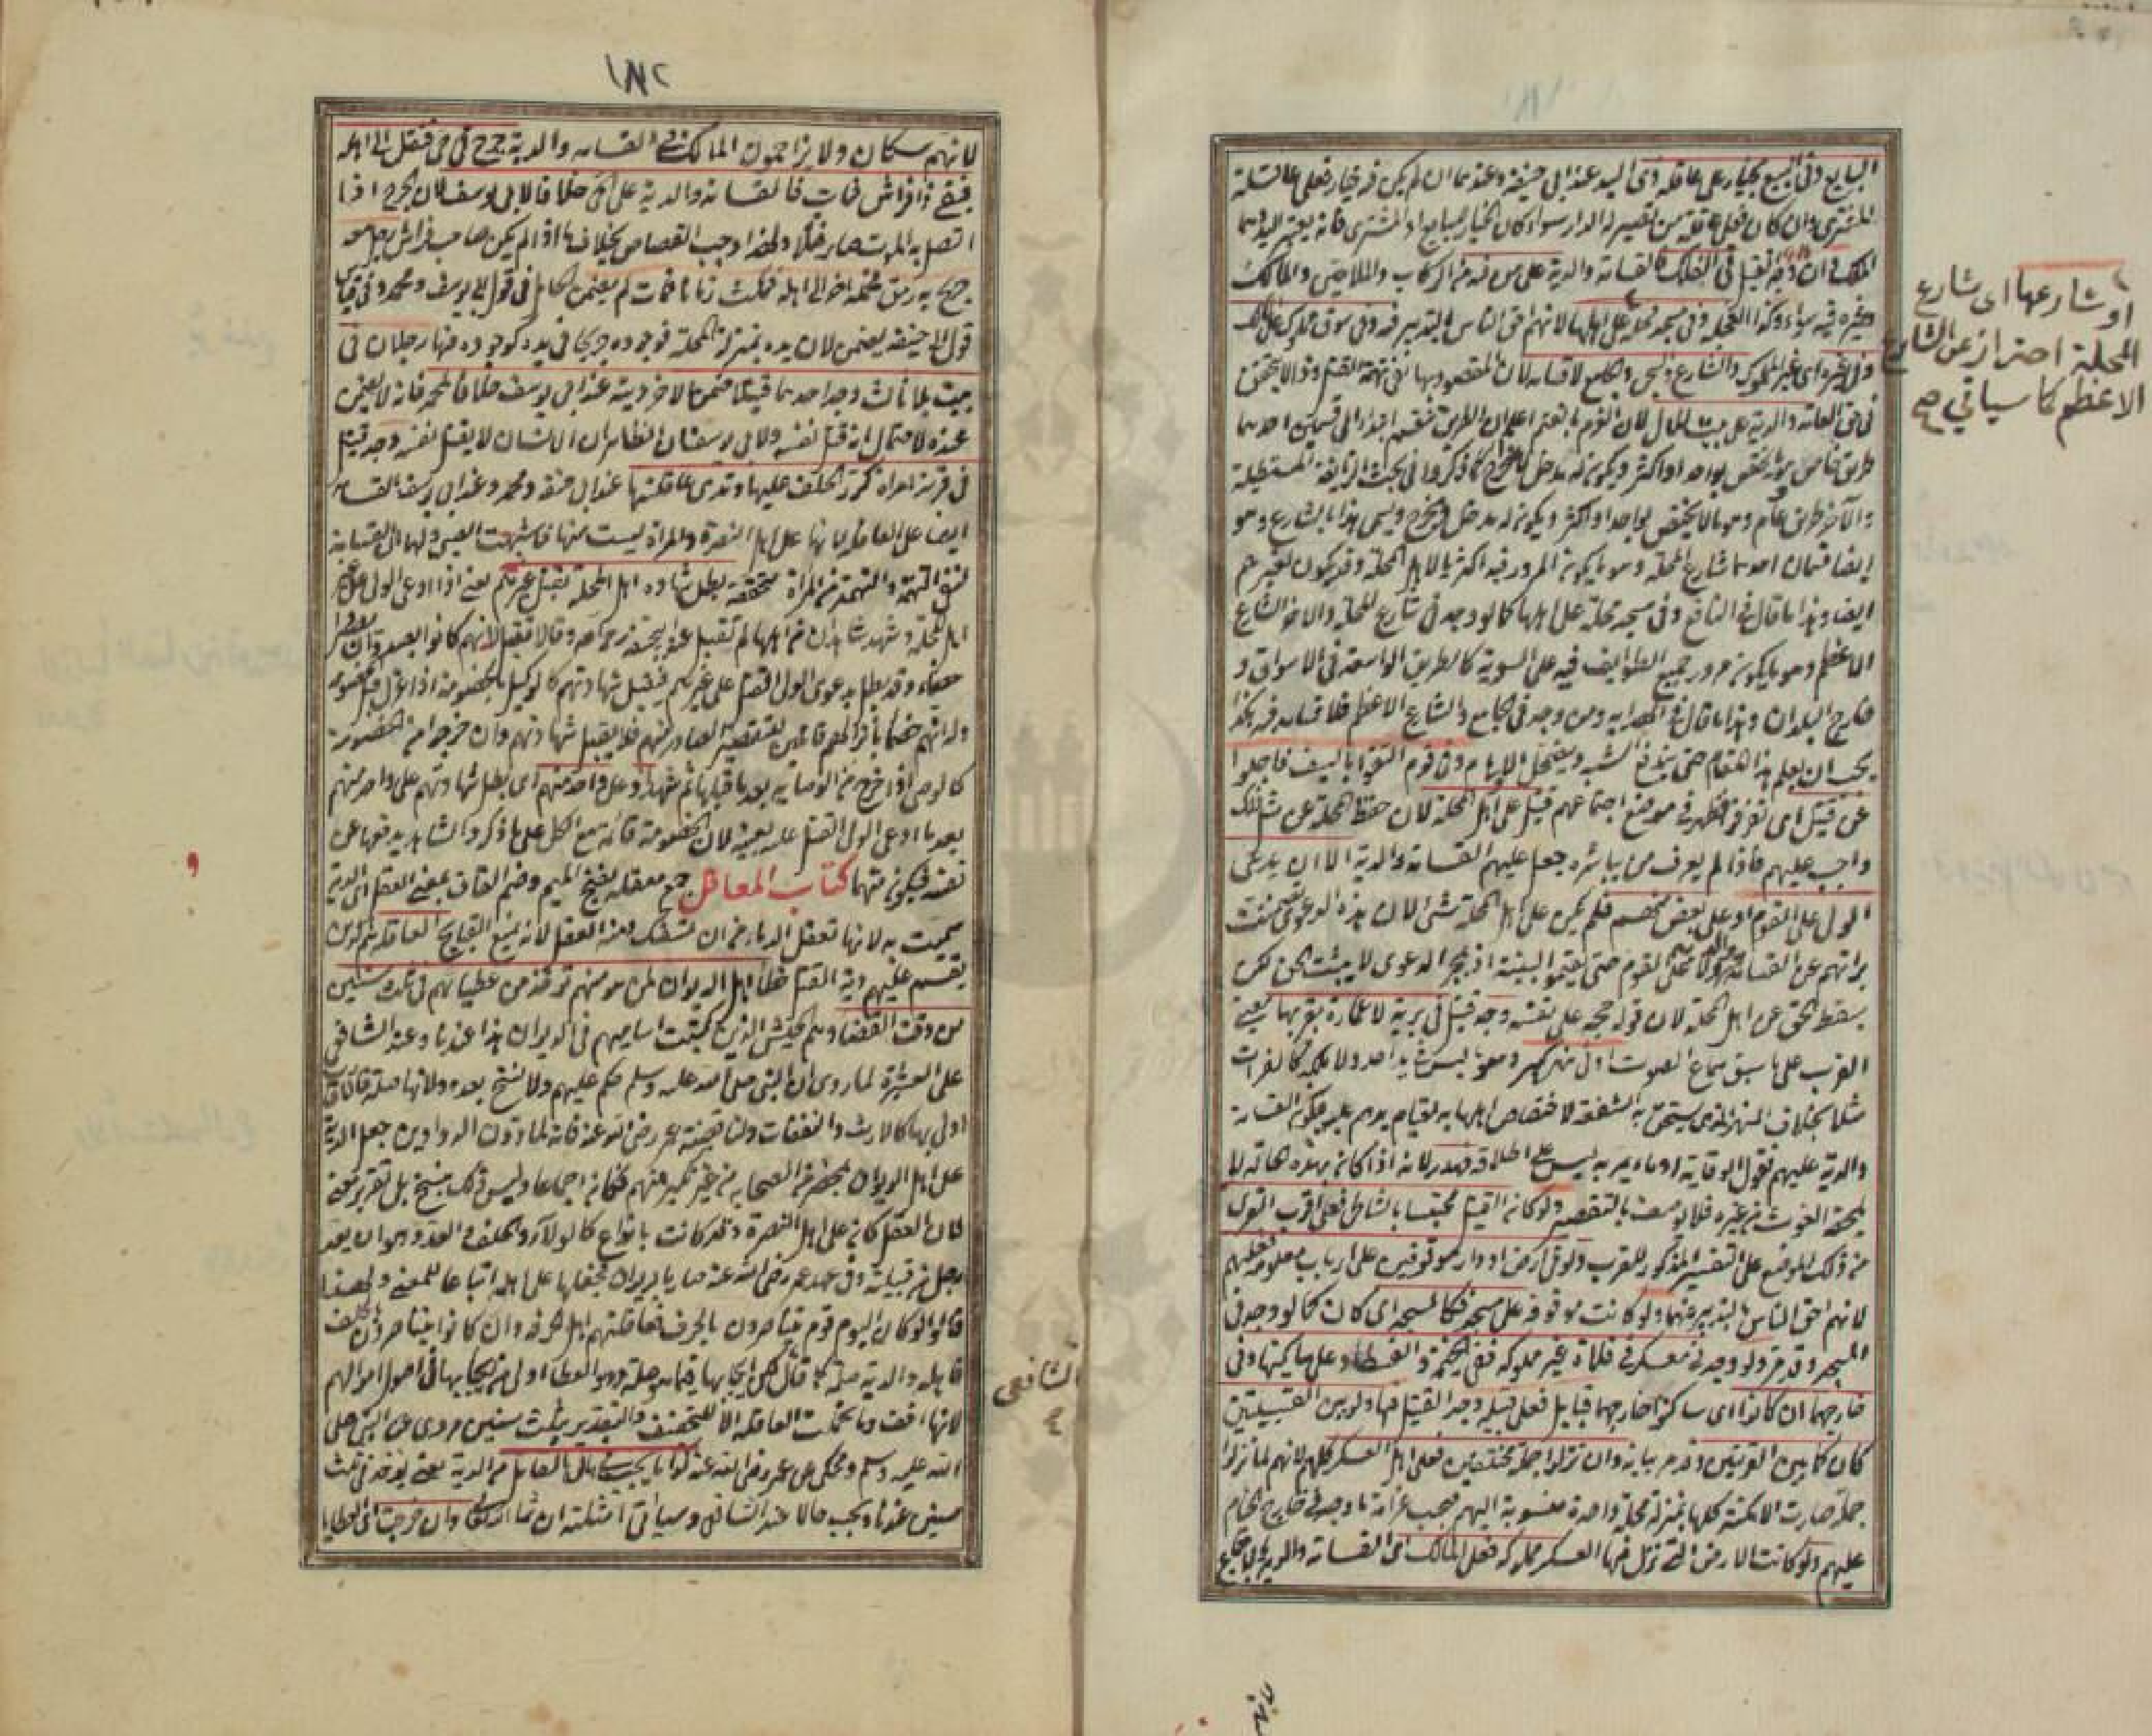 البايع وفي البيع بخيار على عاقلة ذي اليد عند ابي حنيفة وعندهما ان لم يكن فيه خيار فعلى عاقلة
المشتري وان كان فعلى عاقلة من تصير له الدار سواء كان الخيار للبايع او للمشتري فانه يعتبر اليد وهما
الملك وان وجد قتيل في الفلك فالقسامة والدية على من فيه من الركاب والملاحين والمالك
وغيره فيه سواء وكذا العجلة وفي مسجد محلة على اهلها لانهم احق الناس بالتدبير فيه وفي سوق مملوك على المالك
وفي غيره اي غير المملوك والشارع والسجن والجامع لا قسامة لان المقصود بها نفي تهمة القتل وذا لا يتحقق
في حق العامة والدية على بيت المال لان الغرم بالغنم اعلم ان الطريق ينقسم ابتداء الى قسمين احدهما
طريق خاص وهو ما يختص بواحد او اكثر ويكون له مدخل لا مخرج كما ذكروا في بحث الزايغة المستطيلة
والآخر طريق عام وهو ما لا يختص بواحد او اكثر ويكون له مدخل ومخرج ويسمى هذا بالشارع وهو
ايضا قسمان احدهما شارع المحلة وهو ما يكون المرور فيه اكثريا لاهل المحلة وقد يكون لغيرهم
ايضا وهذا ما قال في النافع وفي مسجد محلة على اهلها كما لو وجد في شارع المحلة والاخر الشارع
الاعظم وهو ما يكون مرور جميع الطوايف فيه على السوية كالطريق الواسعة في الاسواق و
خارج البلدان وهذا ما قال في الهداية ومن وجد في الجامع والشارع الاعظم فلا قسامة فيه هكذا
يجب ان يعلم هذا المقام حتى يندفع الشبه ويضمحل الاوهام وفي قوم التقوا بالسيف فاجلوا
عن قتيل اي تفرقوا فظهر في موضع اجتماعهم قتيل على اهل المحلة لان حفظ المحلة عن مثل ذلك
واجب عليهم فاذا لم يعرف من يباشره جعل عليهم القسامة والدية الا ان يدعى
الولي على القوم او على بعض منهم فلم يكن على اهل المحلة شئ لان هذه الدعوى تضمنت
براءتهم عن القسامة والدية ولا على القوم حتى يقيموا البينة اذ بمجرد الدعوى لا يثبت الحق لكن
يسقط الحق عن اهل المحلة لان قوله حجة على نفسه وجد قتيل في برية لا عمارة بقربها يعني
القرب على ما سبق سماع الصوت او في نهر كبير وهو ما ليس في يد احد ولا ملكه كالفرات
مثلا بخلاف النهر الذي يستحق به الشفعة لاختصاص اهلها به لقيام يدهم عليه فيكون القسامة
والدية عليهم فقول الوقاية او ماء يمر به ليس على اطلاقه فهدر لانه اذا كان بهذه الحالة لا
يلحقه الغوث من غيره فلا يوصف بالتقصير ولو كان القتيل محتبسا بالشاطئ فعلى اقرب القرى
من ذلك الموضع على التفسير المذكور للقرب ولو في ارض او دار موقوفتين على ارباب معلومة فعليهم
لانهم احق الناس بالتدبير عنهما ولو كانت موقوفة على مسجد فكالمسجد اي كان كما لو وجد في
المسجد وقد مر ولو وجد في معسكر في فلاة غير مملوكة ففي الخيمة والفسطاط على ساكنها وفي
خارجهما ان كانوا اي ساكنوا خارجهما قبايل فعلى قبيلة وجد القتيل فيها ولو بين القبيلتين
كان كما بين القريتين وقد مر بيانه وان نزلوا جملة مختلطين فعلى اهل العسكر كلهم لانهم لما نزلوا
جملة صارت الامكنة كلها بمنزلة محلة واحدة منسوبة اليهم فيجب غرامة ما وجد في خارج الخيام
عليهم ولو كانت الارض التي نزل فيها العسكر مملوكة فعلى المالك اي القسامة والدية بالاجماع
او شارعها اى شارع
المحلة احتراز عن الشارع
الاعظم كما سياتي صح
١٨٢
لانهم سكان ولا يزاحمون المالك في القسامة والدية جرح في حي فنقل الى اهله
فبقي ذا فراش فمات فالقسامة والدية على الحي خلافا لابي يوسف لان الجرح اذا
اتصل به الموت صار قتلا ولهذا وجب القصاص بخلاف ما اذا لم يكن صاحب فراش رجل معه
جريح به رمق فحمله اخر الى اهله فمكث زمانا فمات لم يضمن الحامل في قول ابي يوسف ومحمد وفي قياس
قول ابي حنيفة يضمن لان يده بمنزلة المحلة فوجوده جريحا في يده كوجوده فيها رجلان في
بيت بلا ثالث وجد احدهما قتيلا ضمن الاخر ديته عند ابي يوسف خلافا لمحمد فانه لا يضمن
عنده لاحتمال انه قتل نفسه ولابي يوسف ان الظاهر ان الانسان لا يقتل نفسه وجد قتيل
في قرية امراة كرر الحلف عليها وتدي عاقلتها عند ابي حنيفة ومحمد وعند ابي يوسف القسامة
ايضا على العاقلة لانها على اهل النصرة والمراة ليست منها فاشبهت الصبي ولهما ان القسامة
لنفي التهمة والتهمة من المراة متحققة بطل شهادة اهل المحلة بقتل غيرهم يعني اذا ادعى الولي على غير
اهل المحلة وشهد شاهدان من اهلها لم تقبل عند ابي حنيفة رحمه الله وقالا تقبل لانهم كانوا بصدد ان يصيروا
خصماء وقد بطل بدعوى الولي القتل على غيرهم فتقبل شهادتهم كالوكيل بالخصومة اذا عزل قبل الخصومة
وله انهم خصماء بانزالهم قاتلين للتقصير الصادر منهم فلا يقبل شهادتهم وان خرجوا من الخصومة
كالوصي اذا خرج من الوصاية بعد ما قبلها ثم شهد او على واحد منهم اي بطل شهادتهم على واحد منهم
بعد ما ادعى الولي القتل عليه بعينه لان الخصومة قائمة مع الكل على ما ذكر والشاهد يدفعها عن
نفسه فيكون متهما كتاب المعاقل جمع معقلة بفتح الميم وضم القاف بمعنى العقل اي الدية
سميت به لانها تعقل الدماء من ان تسفك ومنه العقل لانه يمنع القبايح العاقلة هم الذين
يقسم عليهم دية القتل خطأ اهل الديوان لمن هو منهم تؤخذ من عطياتهم في ثلاث سنين
من وقت القضاء وهم الجيش الذين كتبت اساميهم في الديوان هذا عندنا وعند الشافعي
على العشيرة لما روي ان النبي صلى الله عليه وسلم حكم عليهم ولا نسخ بعده ولانها صلة فالاقارب
اولى بها كالارث والنفقات ولنا قضية عمر رضي الله عنه فانه لما دون الدواوين جعل الدية
على اهل الديوان بمحضر من الصحابة من غير نكير منهم فكان اجماعا وليس ذلك بنسخ بل تقرير معنى
لان العقل كان على اهل النصرة وقد كانت بانواع كالولاء والحلف والعد وهو ان يعد
رجل من قبيلة وفي عهد عمر رضي الله عنه صار بالديوان فجعلها على اهله اتباعا للمعنى ولهذا
قالوا لو كان اليوم قوم يتناصرون بالحرف فعاقلتهم اهل الحرفة وان كانوا يتناصرون بالحلف
فاهله والدية صلة كما قال لكن ايجابها فيما هو صلة وهو العطاء اولى من ايجابها في اصول اموالهم
لانها اخف وما تحملت العاقلة الا للتخفيف والتقدير بثلث سنين مروي عن النبي صلى
الله عليه وسلم ومحكي عن عمر رضي الله عنه كذا ما يجب في مال القاتل من الدية يعني يؤخذ في ثلث
سنين عندنا ويجب حالا عند الشافعي وسيأتي امثلته ان شاء الله تعالى وان خرجت اي العطايا
الشافعي